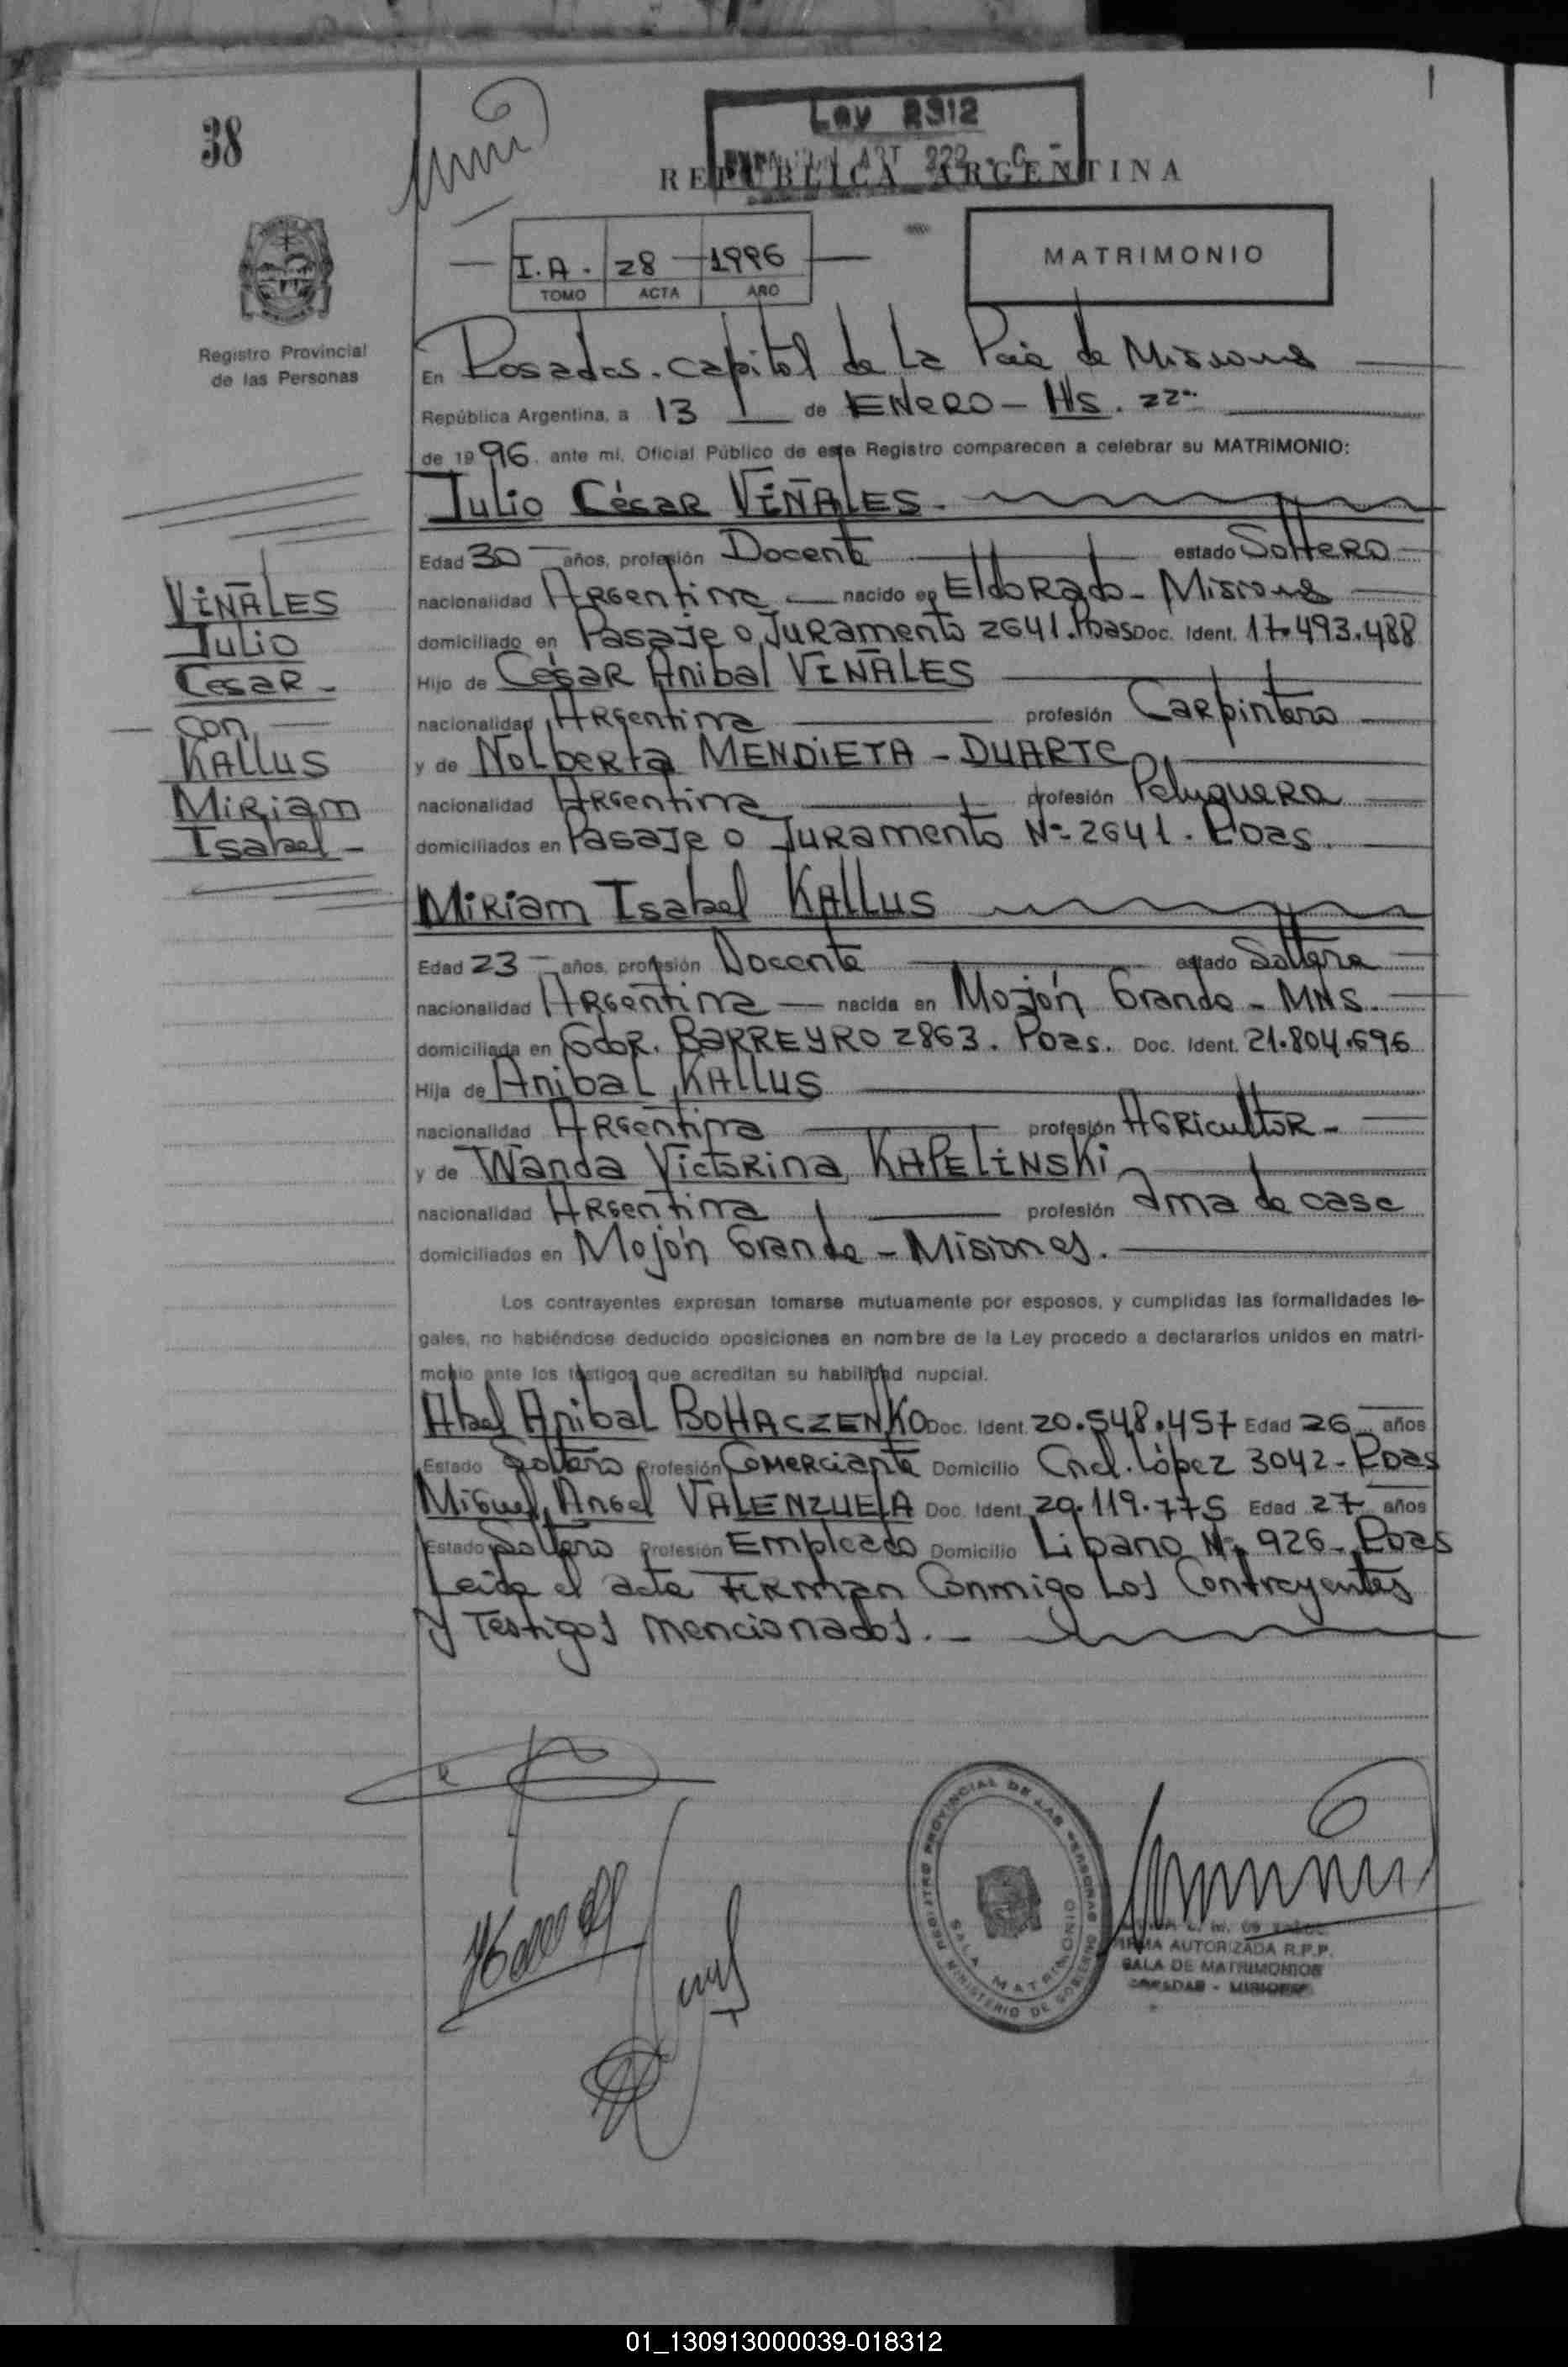 38
Ley 2312
ART 222
REPUBLICA ARGENTINA
I.A. 28 1996
TOMO ACTA AÑO
MATRIMONIO
Registro Provincial
de las Personas
En Posadas. Capital de La Pcia de Misiones
República Argentina, a 13 de ENERO - Hs. 22
de 1996. ante mí, Oficial Público de este Registro comparecen a celebrar su MATRIMONIO:
Julio César VIÑALES.
Edad 30 años, profesión Docente estado Soltero
nacionalidad Argentina nacido en Eldorado - Misiones
domiciliado en Pasaje o Juramento 2641. Poas Doc. Ident. 17.493.488
Hijo de César Anibal VIÑALES
nacionalidad Argentina profesión Carpintero
y de Nolberta MENDIETA - DUARTE
nacionalidad Argentina profesión Peluquera
domiciliados en Pasaje o Juramento Nº 2641. Poas.
VIÑALES
Julio
Cesar -
con
KALLUS
Miriam
Isabel -
Miriam Isabel KALLUS
Edad 23 años, profesión Docente estado Soltera
nacionalidad Argentina nacida en Mojón Grande - MNS.
domiciliada en Gdor. BARREYRO 2863. Poas. Doc. Ident. 21.804.696
Hija de Anibal KALLUS
nacionalidad Argentina profesión Agricultor -
y de Wanda Victorina KAPELINSKI
nacionalidad Argentina profesión Ama de casa
domiciliados en Mojón Grande - Misiones.
Los contrayentes expresan tomarse mutuamente por esposos, y cumplidas las formalidades le-
gales, no habiéndose deducido oposiciones en nombre de la Ley procedo a declararlos unidos en matri-
monio ante los testigos que acreditan su habilidad nupcial.
Abel Anibal BOHACZENKO Doc. Ident. 20.548.457 Edad 26 años
Estado Soltero Profesión Comerciante Domicilio Cnel. López 3042 - Poas
Miguel Angel VALENZUELA Doc. Ident. 20.119.775 Edad 27 años
Estado Soltero Profesión Empleado Domicilio Libano Nº 926 - Poas
Leida el acta Firman Conmigo Los Contrayentes
y Testigos mencionados. -
REGISTRO PROVINCIAL DE LAS PERSONAS
SALA MATRIMONIO
MINISTERIO DE GOBIERNO
FIRMA AUTORIZADA R.P.P.
SALA DE MATRIMONIOS
POSADAS - MISIONES
01_130913000039-018312